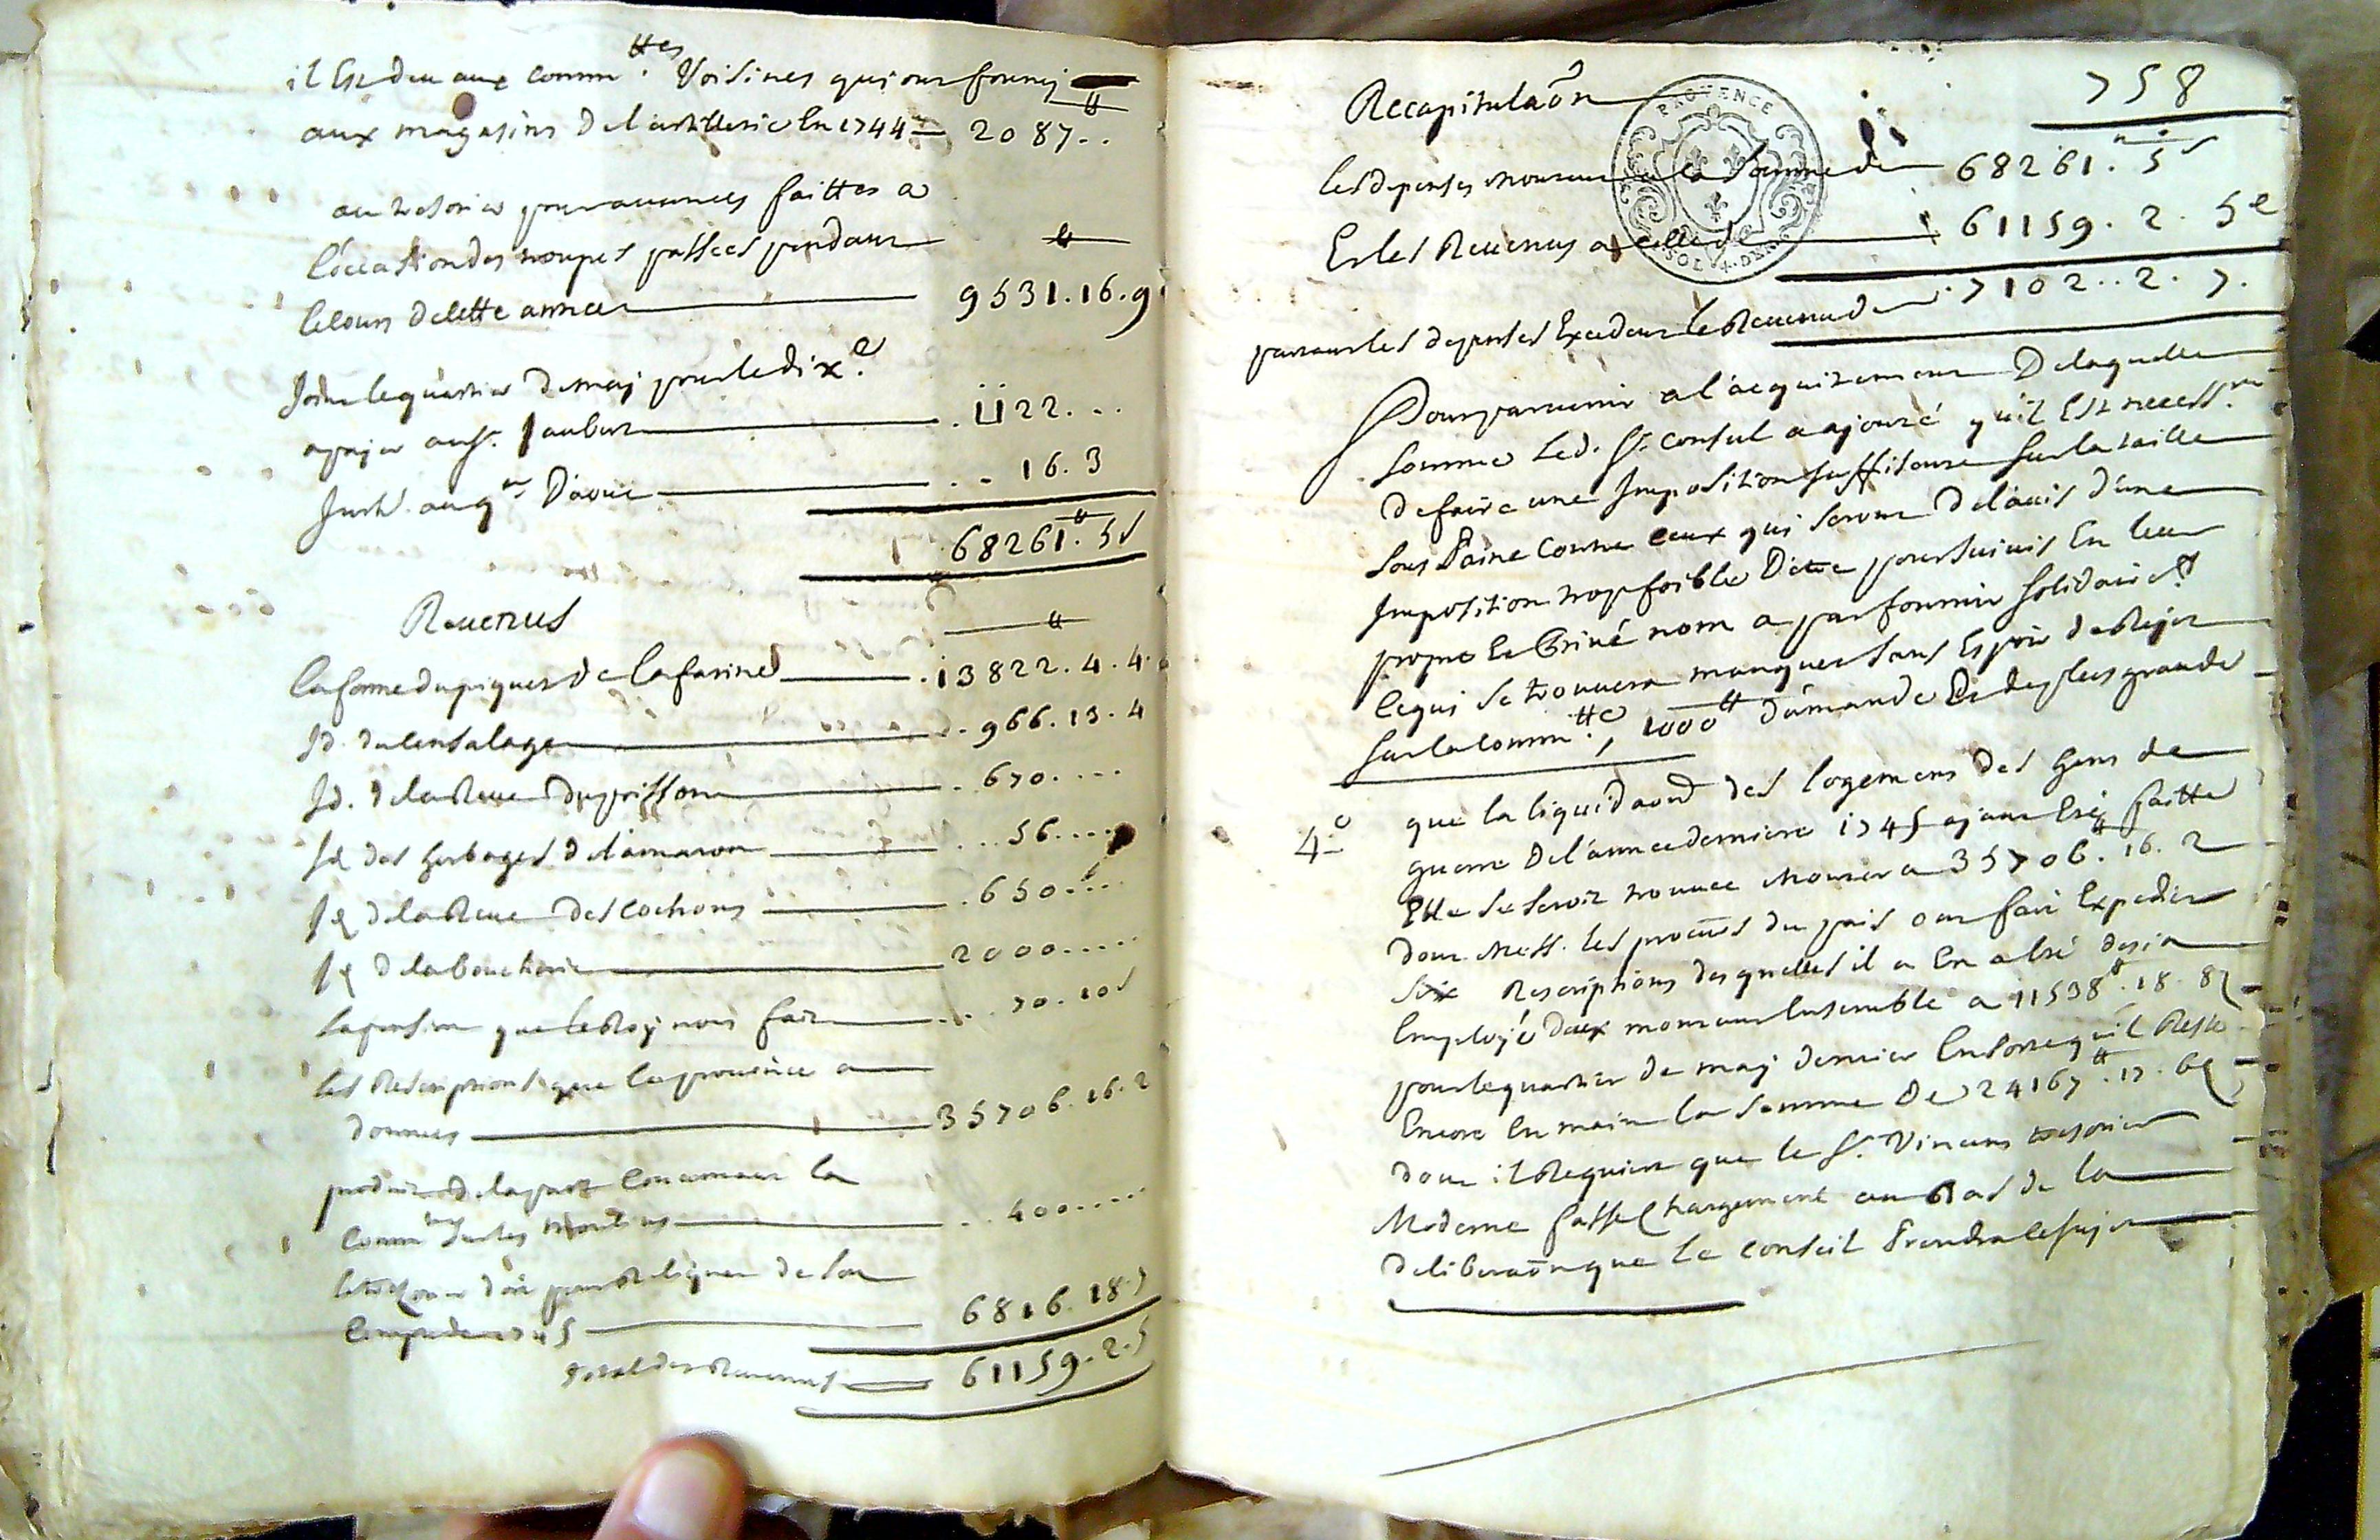 il Est deu aux comm.ttes Voisines qui ont fourny
aux magasins de l'artillerie En 1744 — 2087..
au tresorier pour avances faittes a
l'occasion des troupes passées pendant
le cours de cette année — 9531.16.9
plus le quartier de may pour le dix.e
a payer au sr. Jaubert — 1122...
.. 16.3
68261.# 5s
Revenus
la ferme du piquet de la farine — 13822.4.4.
Id. du censalage — 966.13.4
Id. de la Reve du poisson — 670....
Id des herbages de l'amaron — 56....
Id de la Reve des cochons — 650....
Id de la boucherie — 2000.....
la pension que le Roy nous fait — 70.10s
les Rescriptions que la province a
données — 35706.16.2
produit de la part Concernant la
Comm.té sur les moulins — 400.....
le doit pour Reliquat de son
Compte de 1745 — 6816.18.7
total des Revenus — 61159.2.5
758
Recapitulaôn
PROVENCE
SOL 4. DEN
les depenses montent a la somme de — 68261.# 5s
Et les Revenus a celle de — 61159.2.5e
partant les depenses Excedent le Revenu de 7102..2.7.
Pour parvenir a l'acquitement De laquelle
somme Led. Sr. Consul a ajouté qu'il Est necess.re
de faire une Imposition suffisante sur la taille
sous Paine Contre ceux qui seront de l'avis d'une
Imposition trop foible D'etre poursuivis En leur
propre Et Privé nom a parfournir solidairem.t
ce qui se trouvera manquer sans Espoir de Rejet
sur la comm.tté, 1000# d'amande Et de plus grande
4.o que la liquidaôn des logemens des gens de
guerre De l'année derniere 1745 ayant Eté faitte
Elle se seroit trouvée Monter a 35706.# 16.2
dont Mess. les procûrs du pais ont fait Expedier
six Rescriptions desquelles il a En a Eté deja
Employé deux montant Ensemble a 11538#.18.8d
pour le quartier de may dernier En sorte qu'il Reste
Encore En main la somme De 24167.# 17.6d
dont il Requiert que le Sr. Vincens tresorier
Moderne fasse Chargement au Bas de la
deliberaôn que le Conseil Prendra a ce sujet